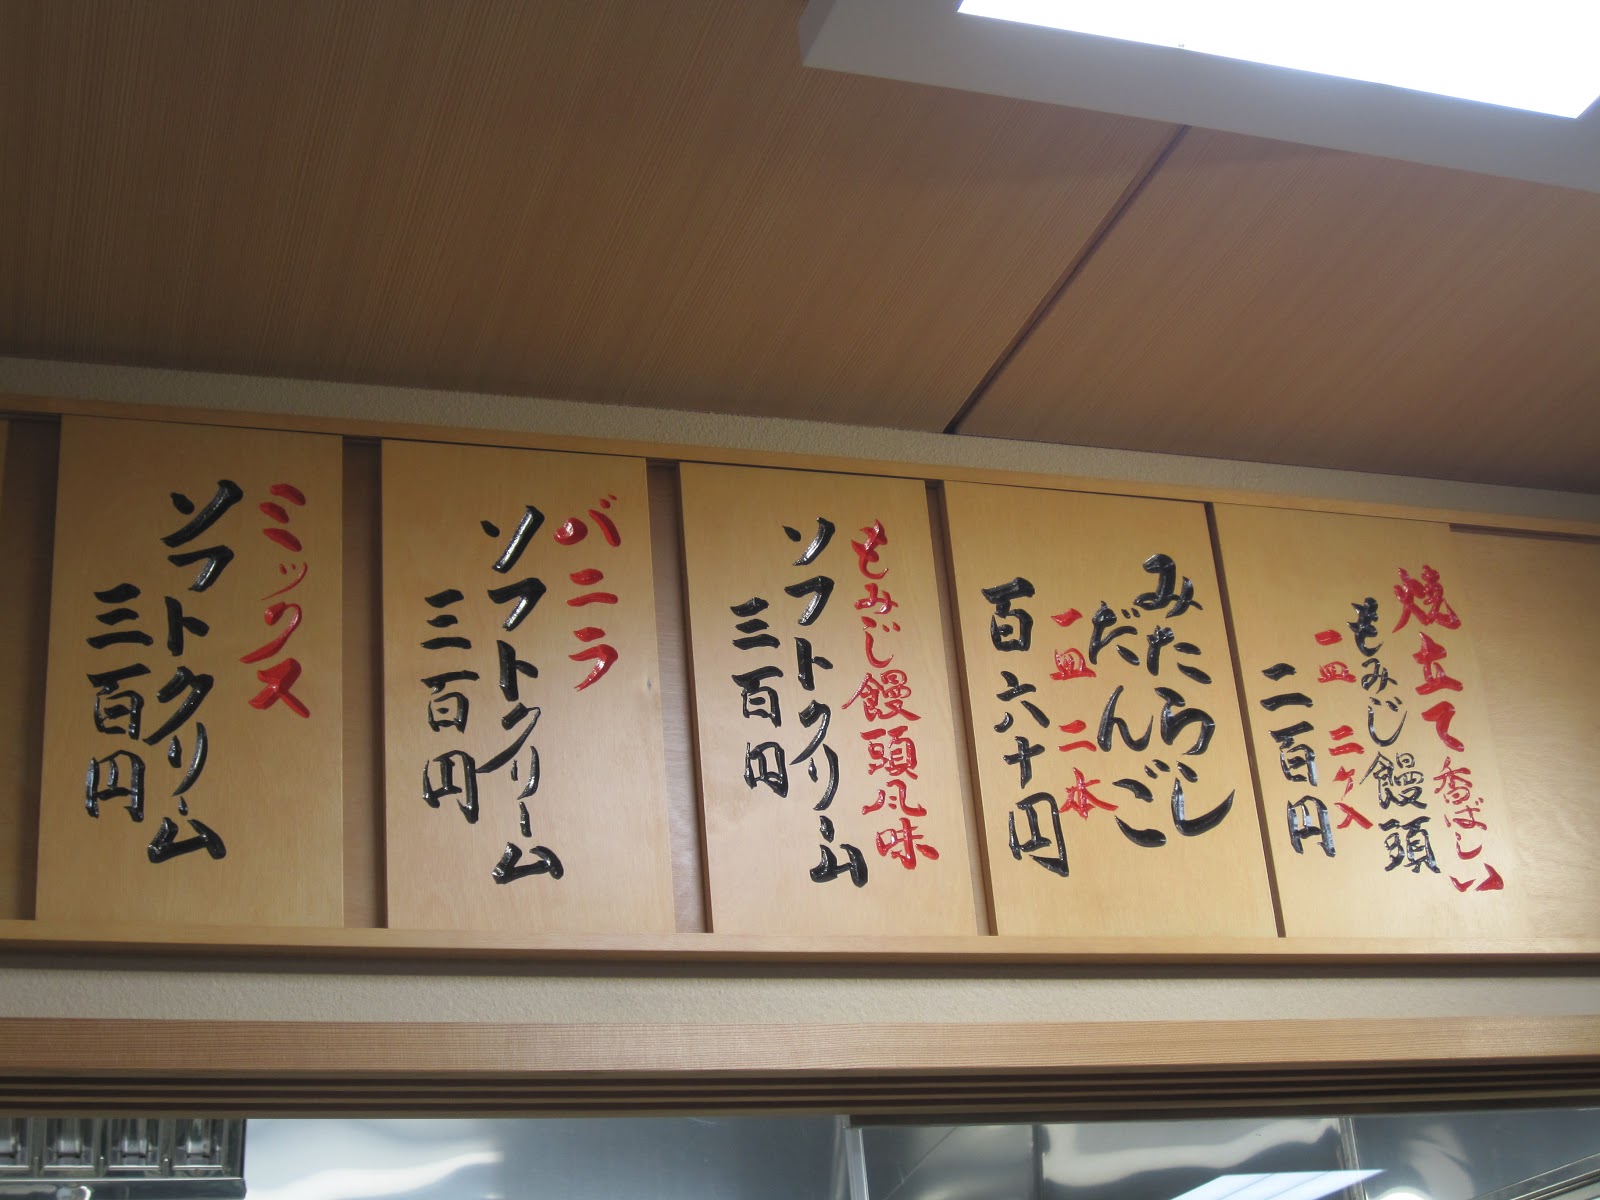 焼立て香ばしい
もみじ饅頭
一皿 二ヶ入
二百円
みたらし
だんご
一皿 二本
百六十円
もみじ饅頭風味
ソフトクリーム
三百円
バニラ
ソフトクリーム
三百円
ミックス
ソフトクリーム
三百円